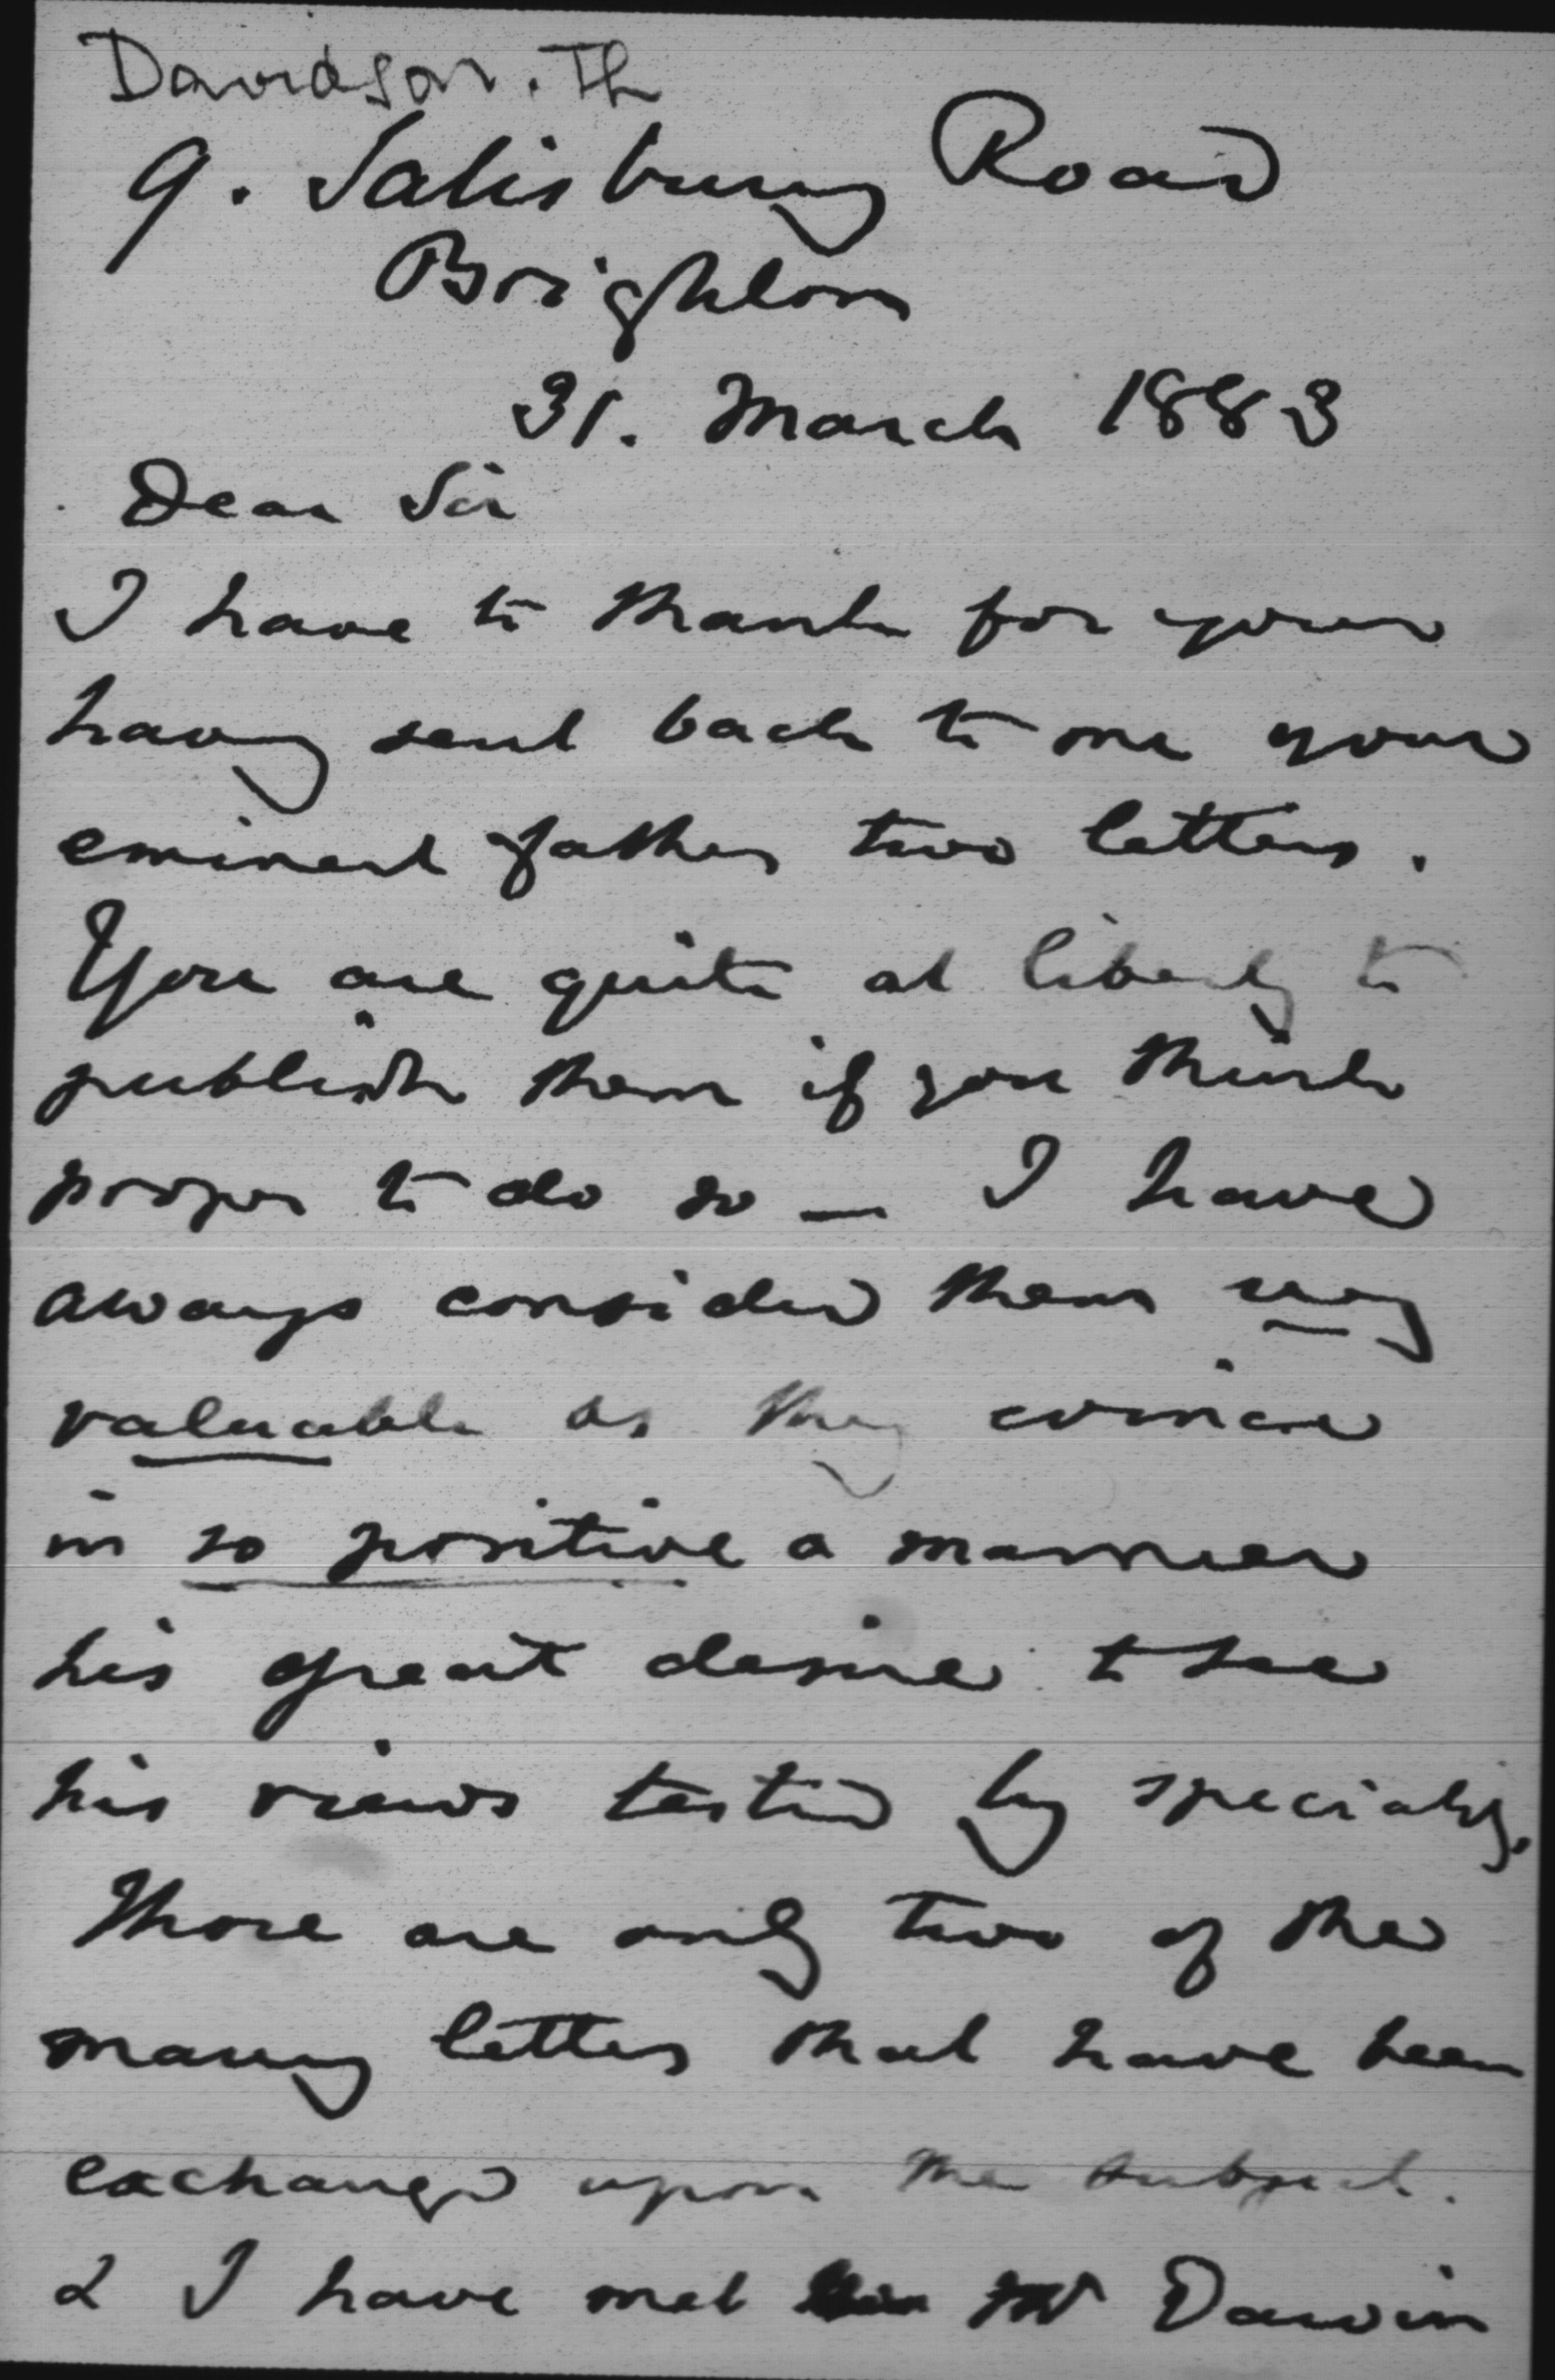 Davidson. Th
9. Salisbury Road
Brighton
31. March 1883
Dear Sir
I have to thank for your
having sent back to me your
eminent father two letters.
You are quite at liberty to
publish them if you think
proper to do so — I have
aways considered them very
valuable as they evince
in so positive a manner
his great desire to see
his views tested by specialists.
These are only two of the
many letters that have been
exchanged upon the subject.
& I have met Mr Darwin